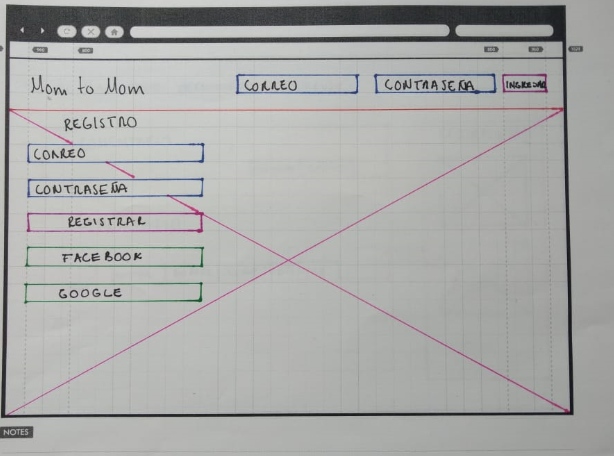 Mom to Mom
CORREO
CONTRASEÑA
INGRESAR
REGISTRO
CORREO
CONTRASEÑA
REGISTRAR
FACEBOOK
GOOGLE
NOTES